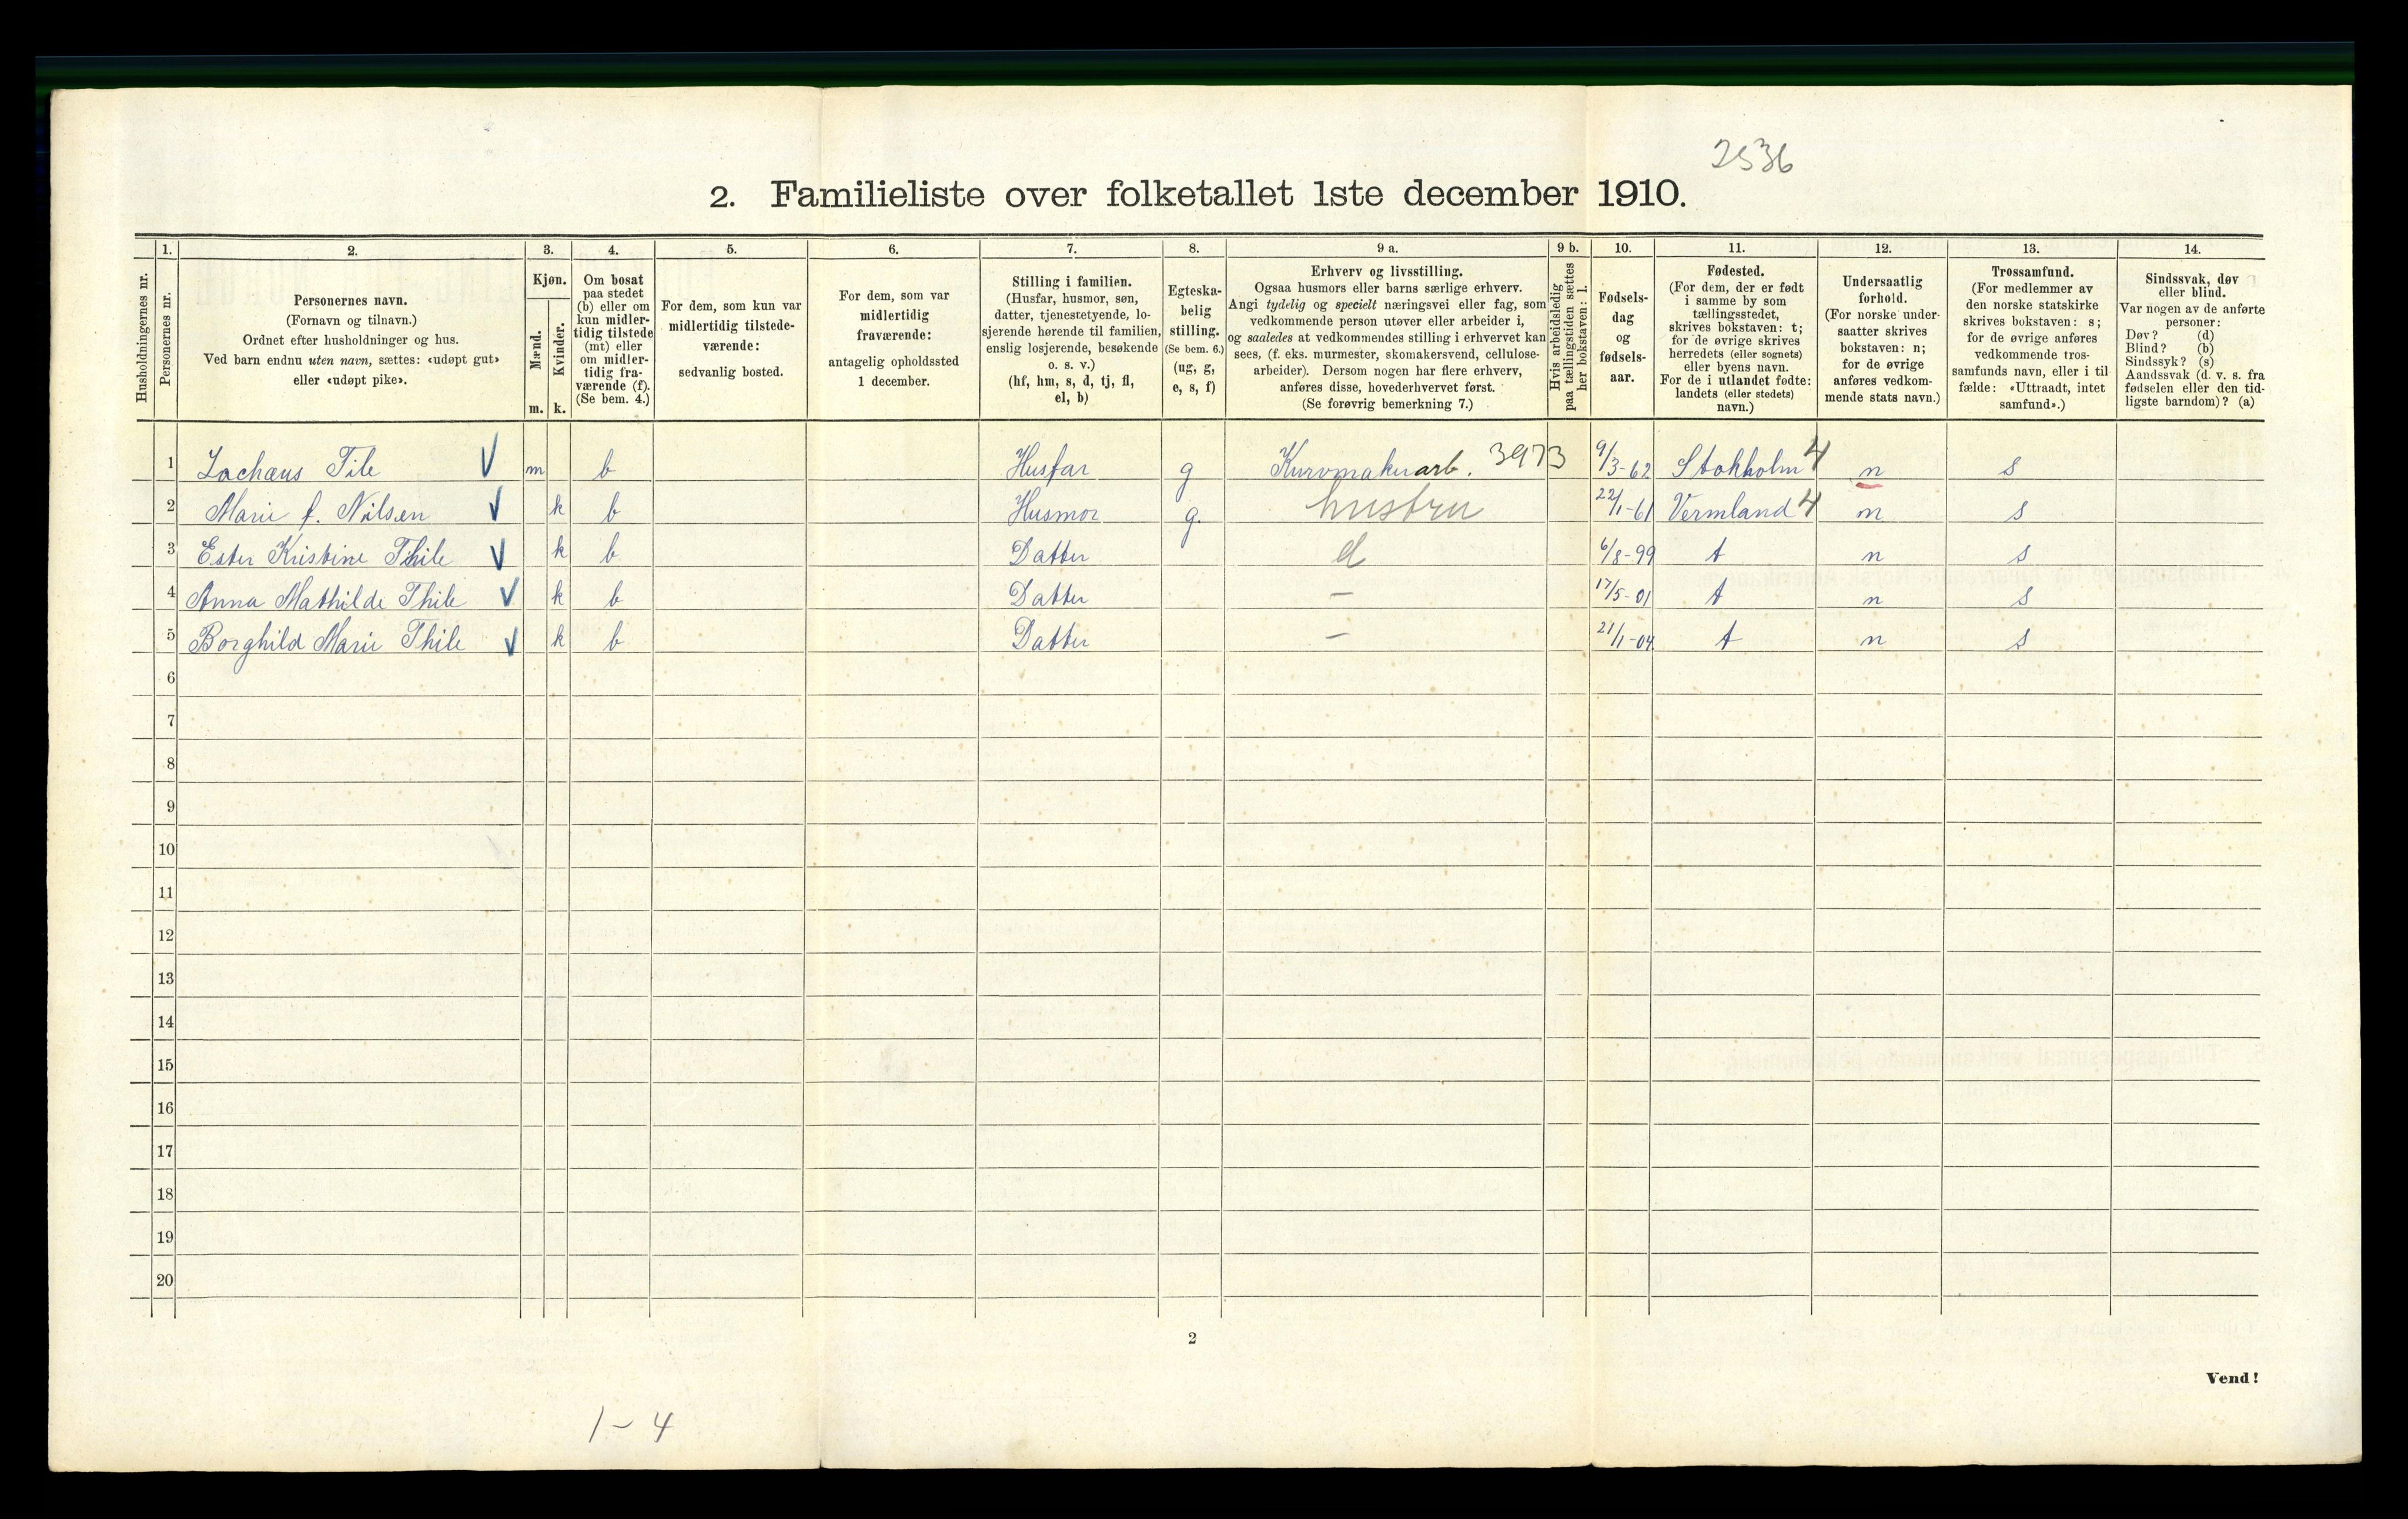 2536
2. Familieliste over folketallet 1ste december 1910.
1. 2. 3. 4. 5. 6. 7. 8. 9 a. 9 b. 10. 11. 12. 13. 14.
Husholdningernes nr.
Personernes nr.
Personernes navn.
(Fornavn og tilnavn.)
Ordnet efter husholdninger og hus.
Ved barn endnu uten navn, sættes: «udøpt gut»
eller «udøpt pike».
Kjøn.
Mænd.
Kvinder.
m. k.
Om bosat
paa stedet
(b) eller om
kun midler-
tidig tilstede
(mt) eller
om midler-
tidig fra-
værende (f).
(Se bem. 4.)
For dem, som kun var
midlertidig tilstede-
værende:
sedvanlig bosted.
For dem, som var
midlertidig
fraværende:
antagelig opholdssted
1 december.
Stilling i familien.
(Husfar, husmor, søn,
datter, tjenestetyende, lo-
sjerende hørende til familien,
enslig losjerende, besøkende
o. s. v.)
(hf, hm, s, d, tj, fl,
el, b)
Egteska-
belig
stilling.
(Se bem. 6.)
(ug, g,
e, s, f)
Erhverv og livsstilling.
Ogsaa husmors eller barns særlige erhverv.
Angi tydelig og specielt næringsvei eller fag, som
vedkommende person utøver eller arbeider i,
og saaledes at vedkommendes stilling i erhvervet kan
sees, (f. eks. murmester, skomakersvend, cellulose-
arbeider). Dersom nogen har flere erhverv,
anføres disse, hovederhvervet først.
(Se forøvrig bemerkning 7.)
Hvis arbeidsledig
paa tællingstiden sættes
her bokstaven: l.
Fødsels-
dag
og
fødsels-
aar.
Fødested.
(For dem, der er født
i samme by som
tællingsstedet,
skrives bokstaven: t;
for de øvrige skrives
herredets (eller sognets)
eller byens navn.
For de i utlandet fødte:
landets (eller stedets)
navn.)
Undersaatlig
forhold.
(For norske under-
saatter skrives
bokstaven: n;
for de øvrige
anføres vedkom-
mende stats navn.)
Trossamfund.
(For medlemmer av
den norske statskirke
skrives bokstaven: s;
for de øvrige anføres
vedkommende tros-
samfunds navn, eller i til-
fælde: «Uttraadt, intet
samfund».)
Sindssvak, døv
eller blind.
Var nogen av de anførte
personer:
Døv? (d)
Blind? (b)
Sindssyk? (s)
Aandssvak (d. v. s. fra
fødselen eller den tid-
ligste barndom)? (a)
1 Zachæus Tile m b Husfar g Kurvmakerarb. 3973 9/3-62 Stokholm 4 n s
2 Marie f. Nilsen k b Husmor g. hustru 22/1-61 Vermland 4 n s
3 Ester Kristine Thile k b Datter d 6/8-99 t n s
4 Anna Mathilde Thile k b Datter - 17/5-01 t n s
5 Borghild Marie Thile k b Datter - 21/1-04 t n s
6
7
8
9
10
11
12
13
14
15
16
17
18
19
20
2
Vend!
1-4